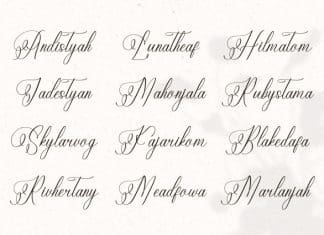 Andistyah Lunatheaf Hilmatom
Jadestyan Mahonjala Rubystama
Skylarvog Pajarikom Blakedafa
Rivhertany Meadfowa Marlanjah